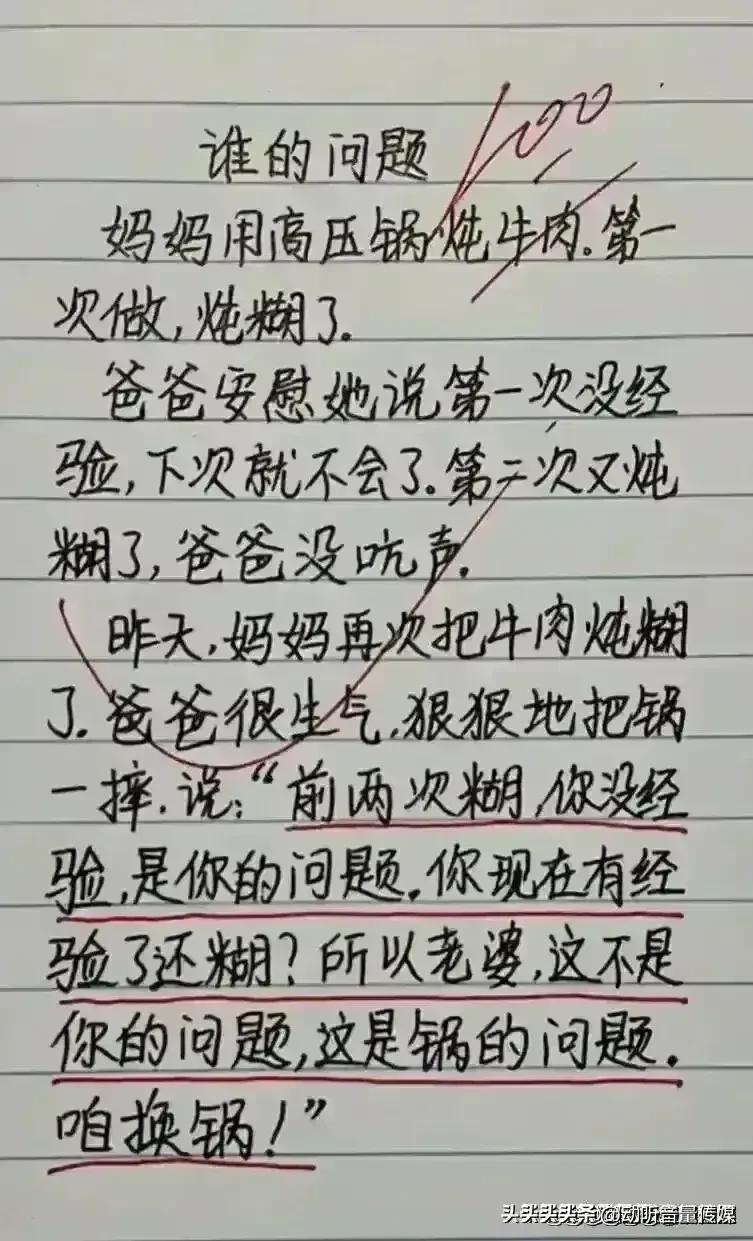 100
谁的问题
妈妈用高压锅炖牛肉.第一
次做,炖糊了.
爸爸安慰她说第一次没经
验,下次就不会了.第二次又炖
糊了,爸爸没吭声.
昨天,妈妈再次把牛肉炖糊
了.爸爸很生气,狠狠地把锅
一摔,说:“前两次糊,你没经
验,是你的问题.你现在有经
验了还糊?所以老婆,这不是
你的问题,这是锅的问题.
咱换锅!”
@动听音量传媒